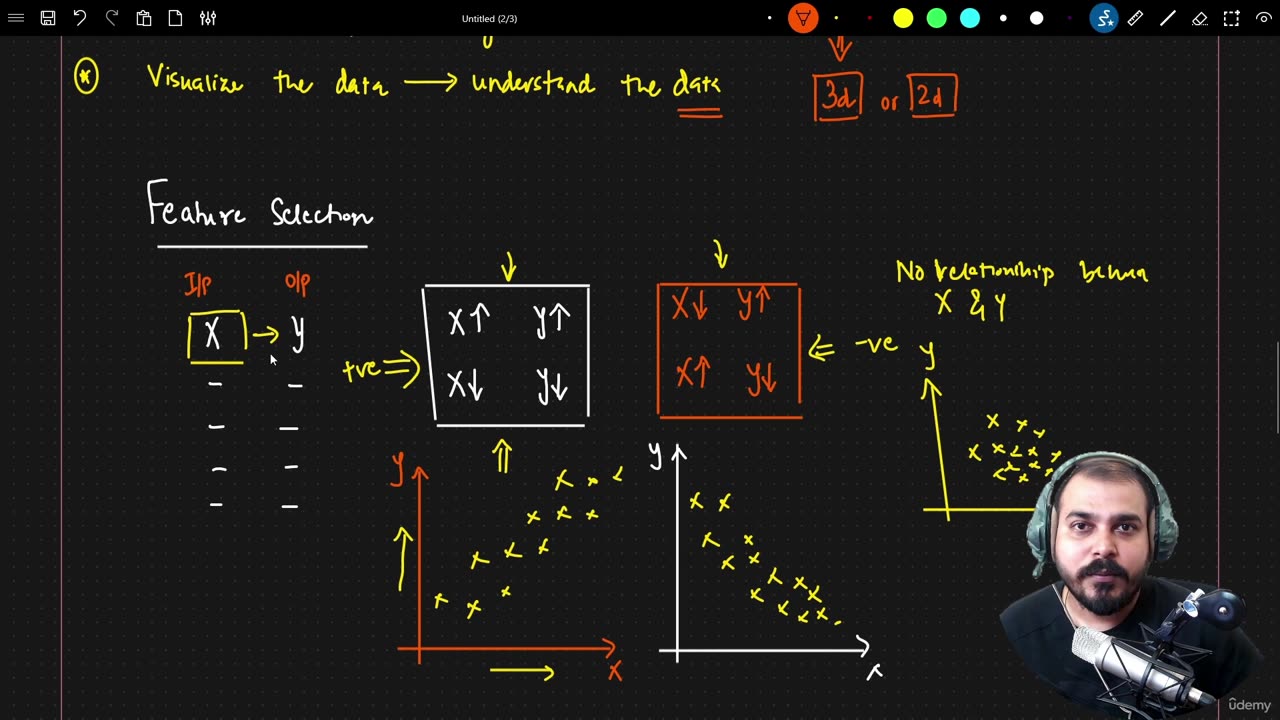 Untitled (2/3)
Visualize the data → understand the data
3d or 2d
Feature Selection
I/p O/p
X → y
- -
- -
- -
- -
+ve ⇒
X↑ y↑
X↓ y↓
X↓ y↑
X↑ y↓
⇐ -ve
No relationship
X & y
y
y
x
y
x
ûdemy